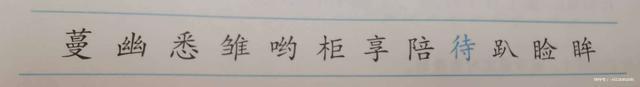 蔓 幽 悉 雏 哟 柜 享 陪 待 趴 睑 眸